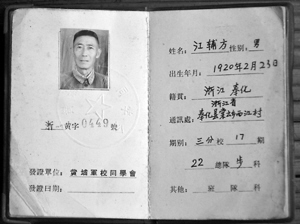 浙一黄字0449號
發證單位:黄埔軍校同學會
發證日期:
姓名:江輔方 性别:男
出生年月:1920年2月23日
籍貫:浙江 奉化
通訊處:浙江省
奉化县 江村
期别:三分校 17 期
22 總隊 步 科
其他: 班 隊 科